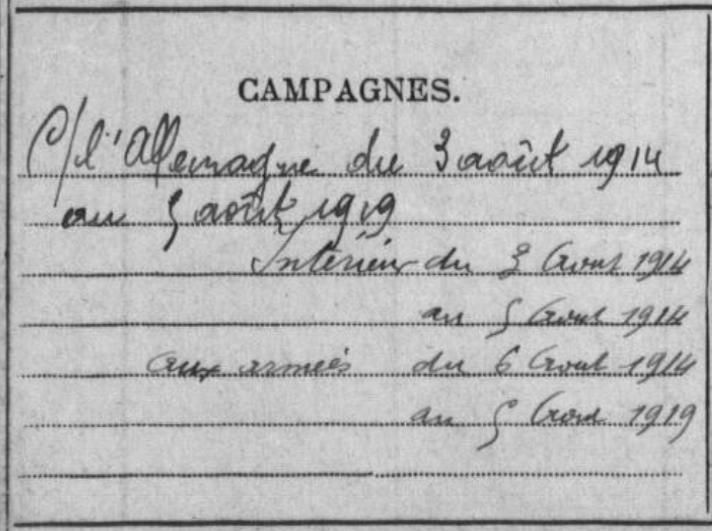 CAMPAGNES.
C/l'Allemagne du 3 août 1914
au 5 août 1919
Intérieur du 3 Aout 1914
au 5 Aout 1914
aux armées du 6 Aout 1914
au 5 Aout 1919